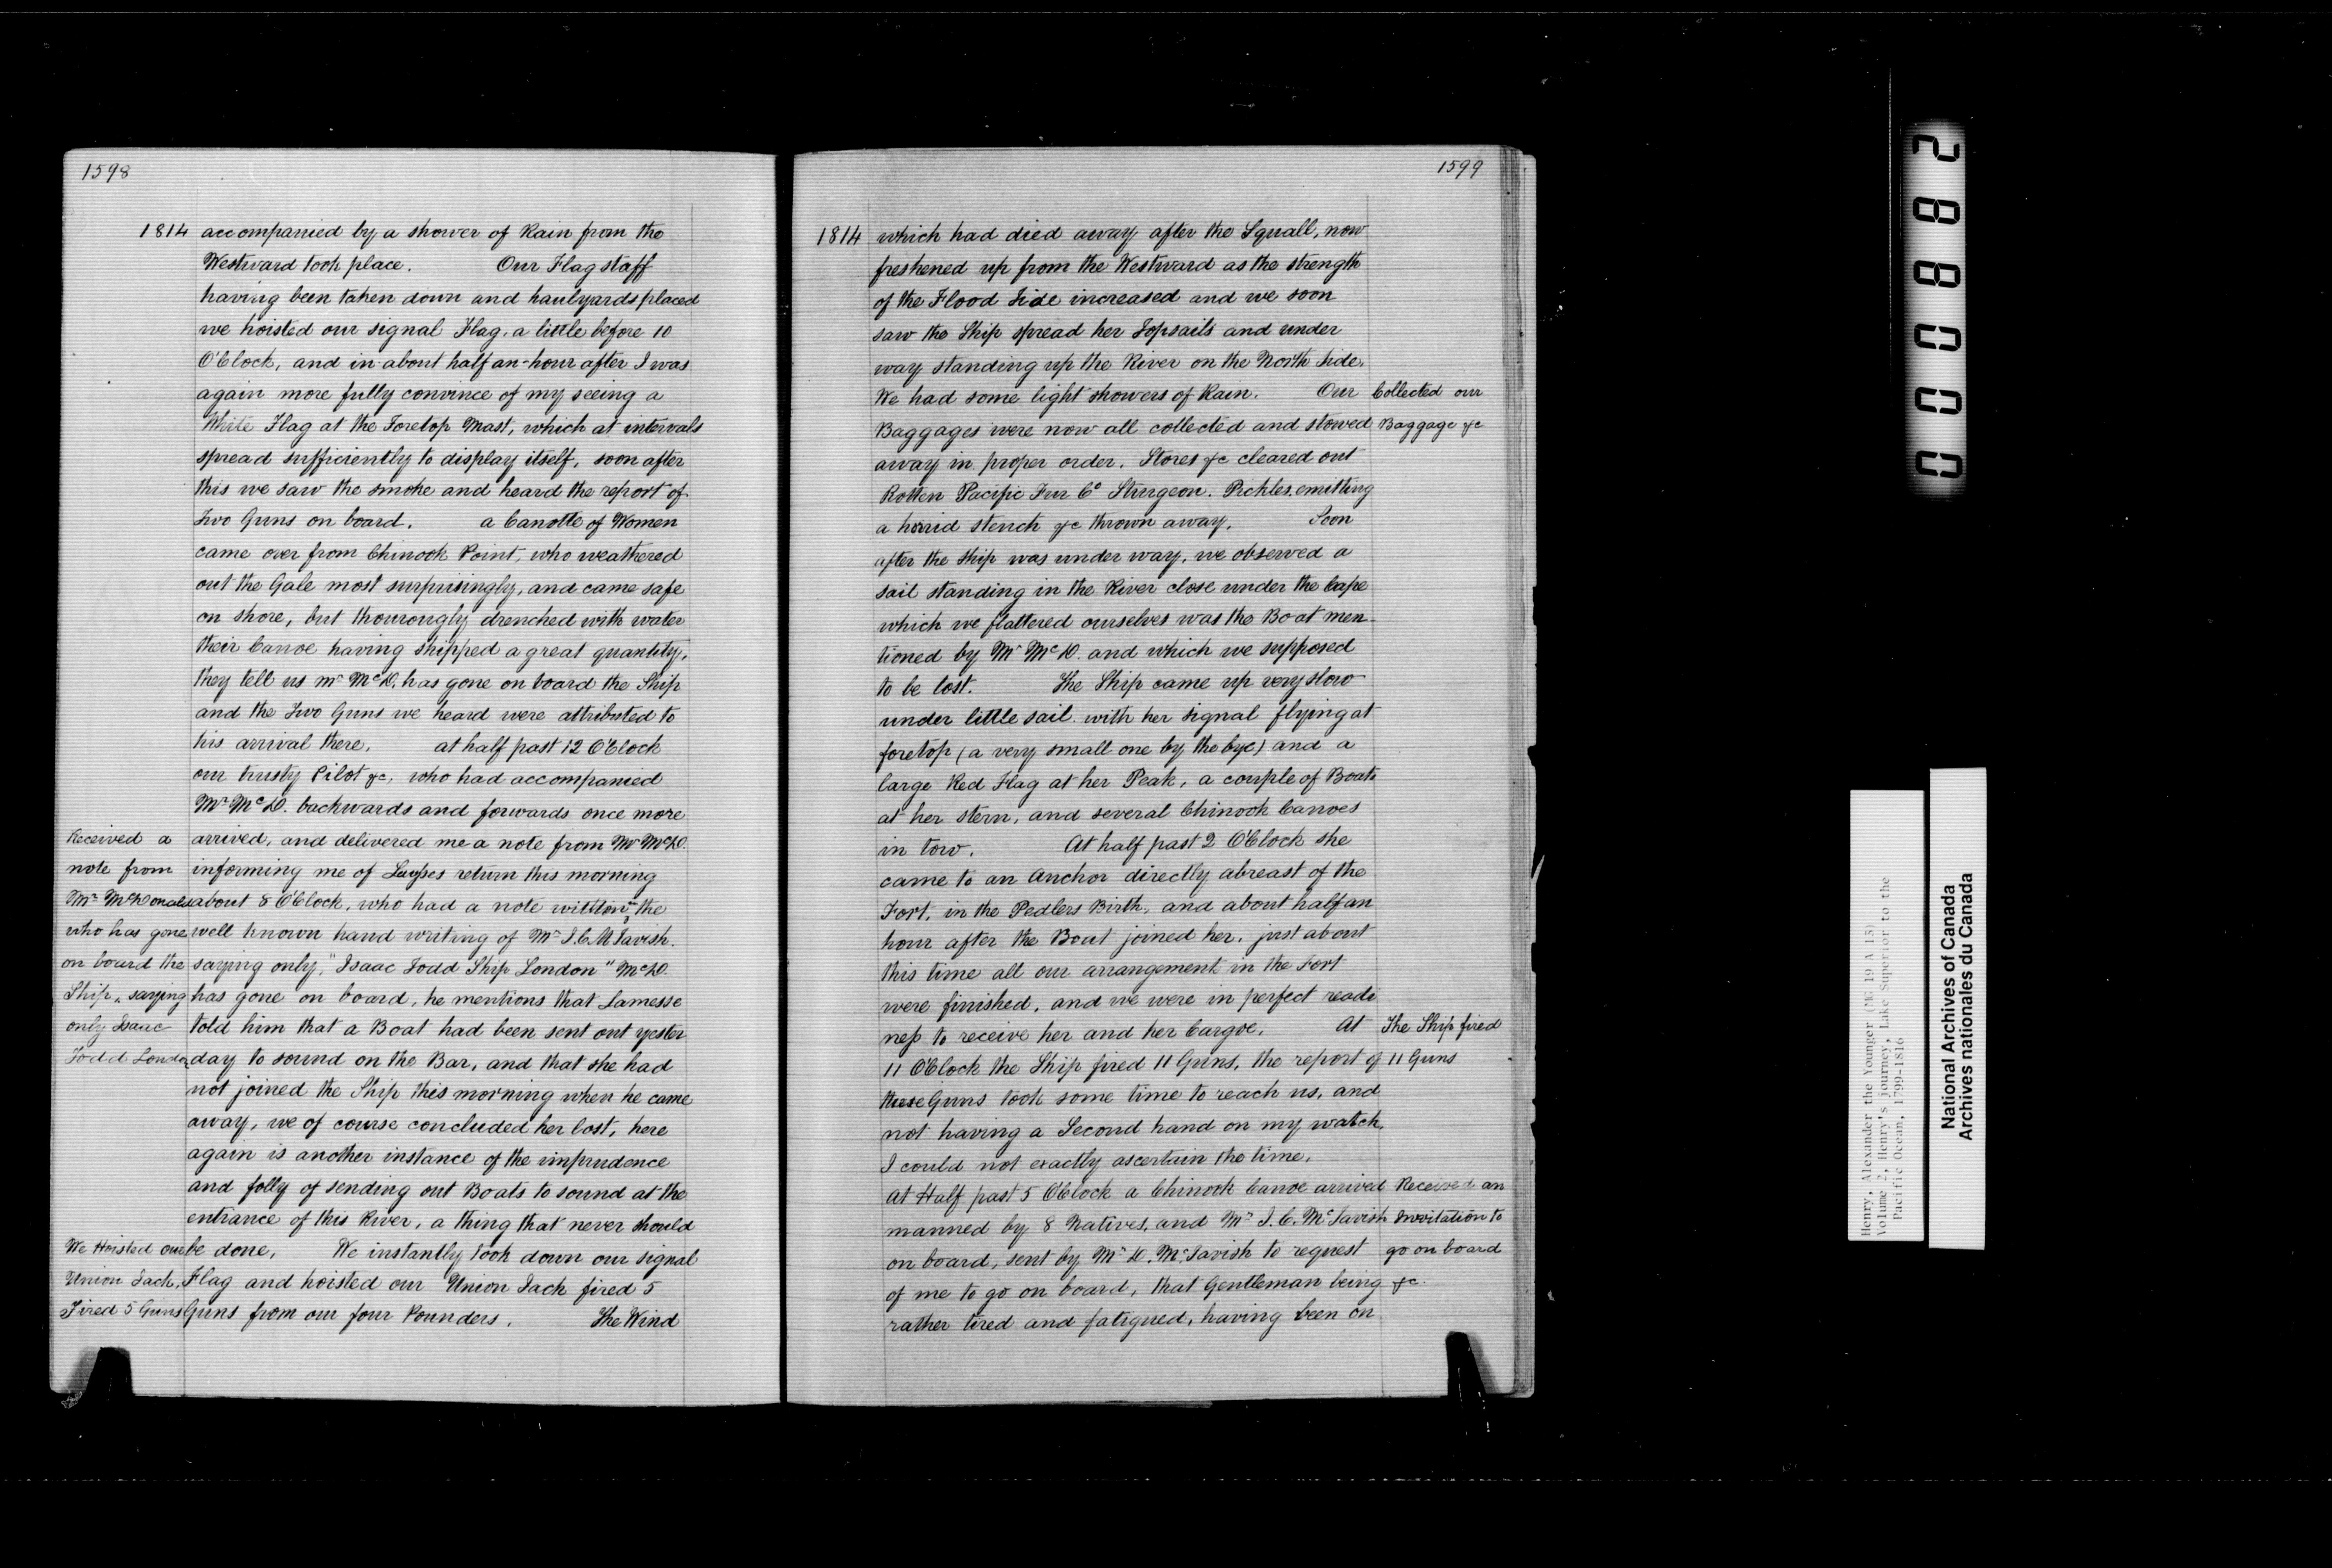 1598
1814 accompanied by a shower of Rain from the
Westward took place. Our Flag staff
having been taken down and haulyards placed
we hoisted our signal Flag, a little before 10
O'Clock, and in about half an-hour after I was
again more fully convince of my seeing a
White Flag at the Foretop Mast, which at intervals
spread sufficiently to display itself, soon after
this we saw the smoke and heard the report of
Two Guns on board. a Canotte of Women
came over from Chinook Point, who weathered
out the Gale most surprisingly, and came safe
on shore, but thourougly drenched with water
their Canoe having shipped a great quantity,
they tell us Mr McD. has gone on board the Ship
and the Two Guns we heard were attributed to
his arrival there. at half past 12 O'Clock
our trusty Pilot &c, who had accompanied
Mr McD. backwards and forwards once more
arrived, and delivered me a note from Mr McD.
informing me of return this morning
about 8 O'Clock, who had a note written in the
well known hand writing of Mr J.C. McTavish.
saying only, "Isaac Todd Ship London" McD.
has gone on board, he mentions that Lamesse
told him that a Boat had been sent out yester
day to sound on the Bar, and that she had
not joined the Ship this morning when he came
away, we of course concluded her lost, here
again is another instance of the imprudence
and folly of sending out Boats to sound at the
entrance of this River, a thing that never should
be done, We instantly took down our signal
Flag and hoisted our Union Jack fired 5
Guns from our four Pounders. The Wind
Received a
note from
Mr McDonald
who has gone
on board the
Ship, saying
only Isaac
Todd London
We Hoisted our
Union Jack,
Fired 5 Guns
1599
1814 which had died away after the Squall, now
freshened up from the Westward as the strength
of the Flood Tide increased and we soon
saw the Ship spread her Topsails and under
way standing up the River on the North side.
We had some light showers of Rain. Our
Baggages were now all collected and stowed
away in proper order. Stores &c cleared out
Rotten Pacific Fur Co Sturgeon. Pickles. emitting
a horrid stench &c thrown away. Soon
after the Ship was under way, we observed a
sail standing in the River close under the Cape
which we flattered ourselves was the Boat men
tioned by Mr McD. and which we supposed
to be lost. The Ship came up very slow
under little sail with her signal flying at
foretop (a very small one by the bye) and a
large Red Flag at her Peak, a couple of Boats
at her stern, and several Chinook Canoes
in tow. At half past 2 O'Clock she
came to an Anchor directly abreast of the
Fort, in the Pedlers Birth, and about half an
hour after the Boat joined her. just about
this time all our arrangement in the Fort
were finished, and we were in perfect readi
ness to receive her and her Cargoe. At
11 O'Clock the Ship fired 11 Guns, the report of
these Guns took some time to reach us, and
not having a Second hand on my watch,
I could not exactly ascertain the time.
at Half past 5 O'Clock a Chinook Canoe arrived
manned by 8 Natives, and Mr J.C. McTavish
on board, sent by Mr D. McTavish to request
of me to go on board, that Gentleman being
rather tired and fatigued, having been on
Collected our
Baggage &c
The Ship fired
11 Guns
Received an
Invitation to
go on board
&c.
000882
Henry, Alexander the Younger (MG 19 A 13)
Volume 2, Henry's journey, Lake Superior to the
Pacific Ocean, 1799-1816
National Archives of Canada
Archives nationales du Canada